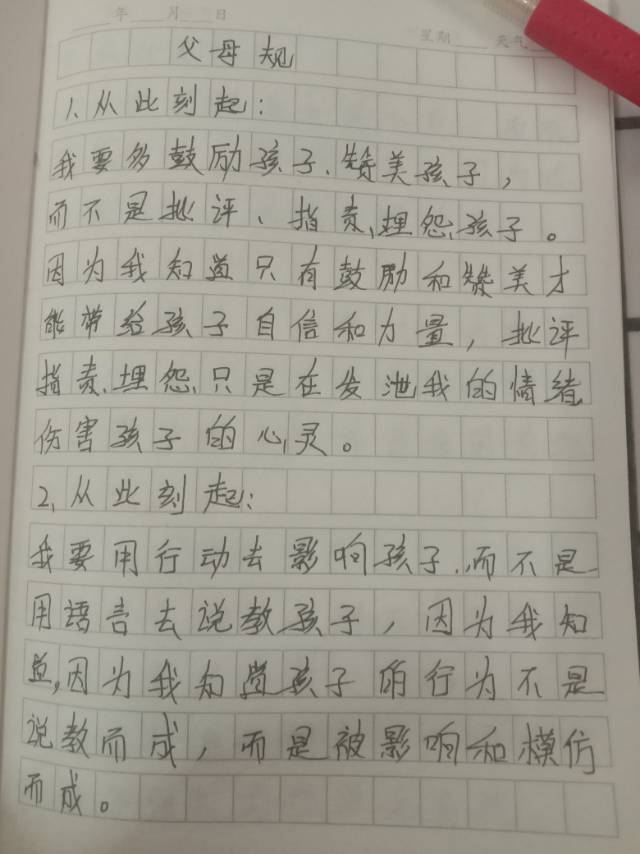 年 月 日
星期 天气
父母规
1、从此刻起：
我要多鼓励孩子、赞美孩子，
而不是批评、指责、埋怨孩子。
因为我知道只有鼓励和赞美才
能带给孩子自信和力量，批评
指责、埋怨只是在发泄我的情绪
伤害孩子的心灵。
2、从此刻起：
我要用行动去影响孩子、而不是
用语言去说教孩子，因为我知
道，因为我知道孩子的行为不是
说教而成，而是被影响和模仿
而成。